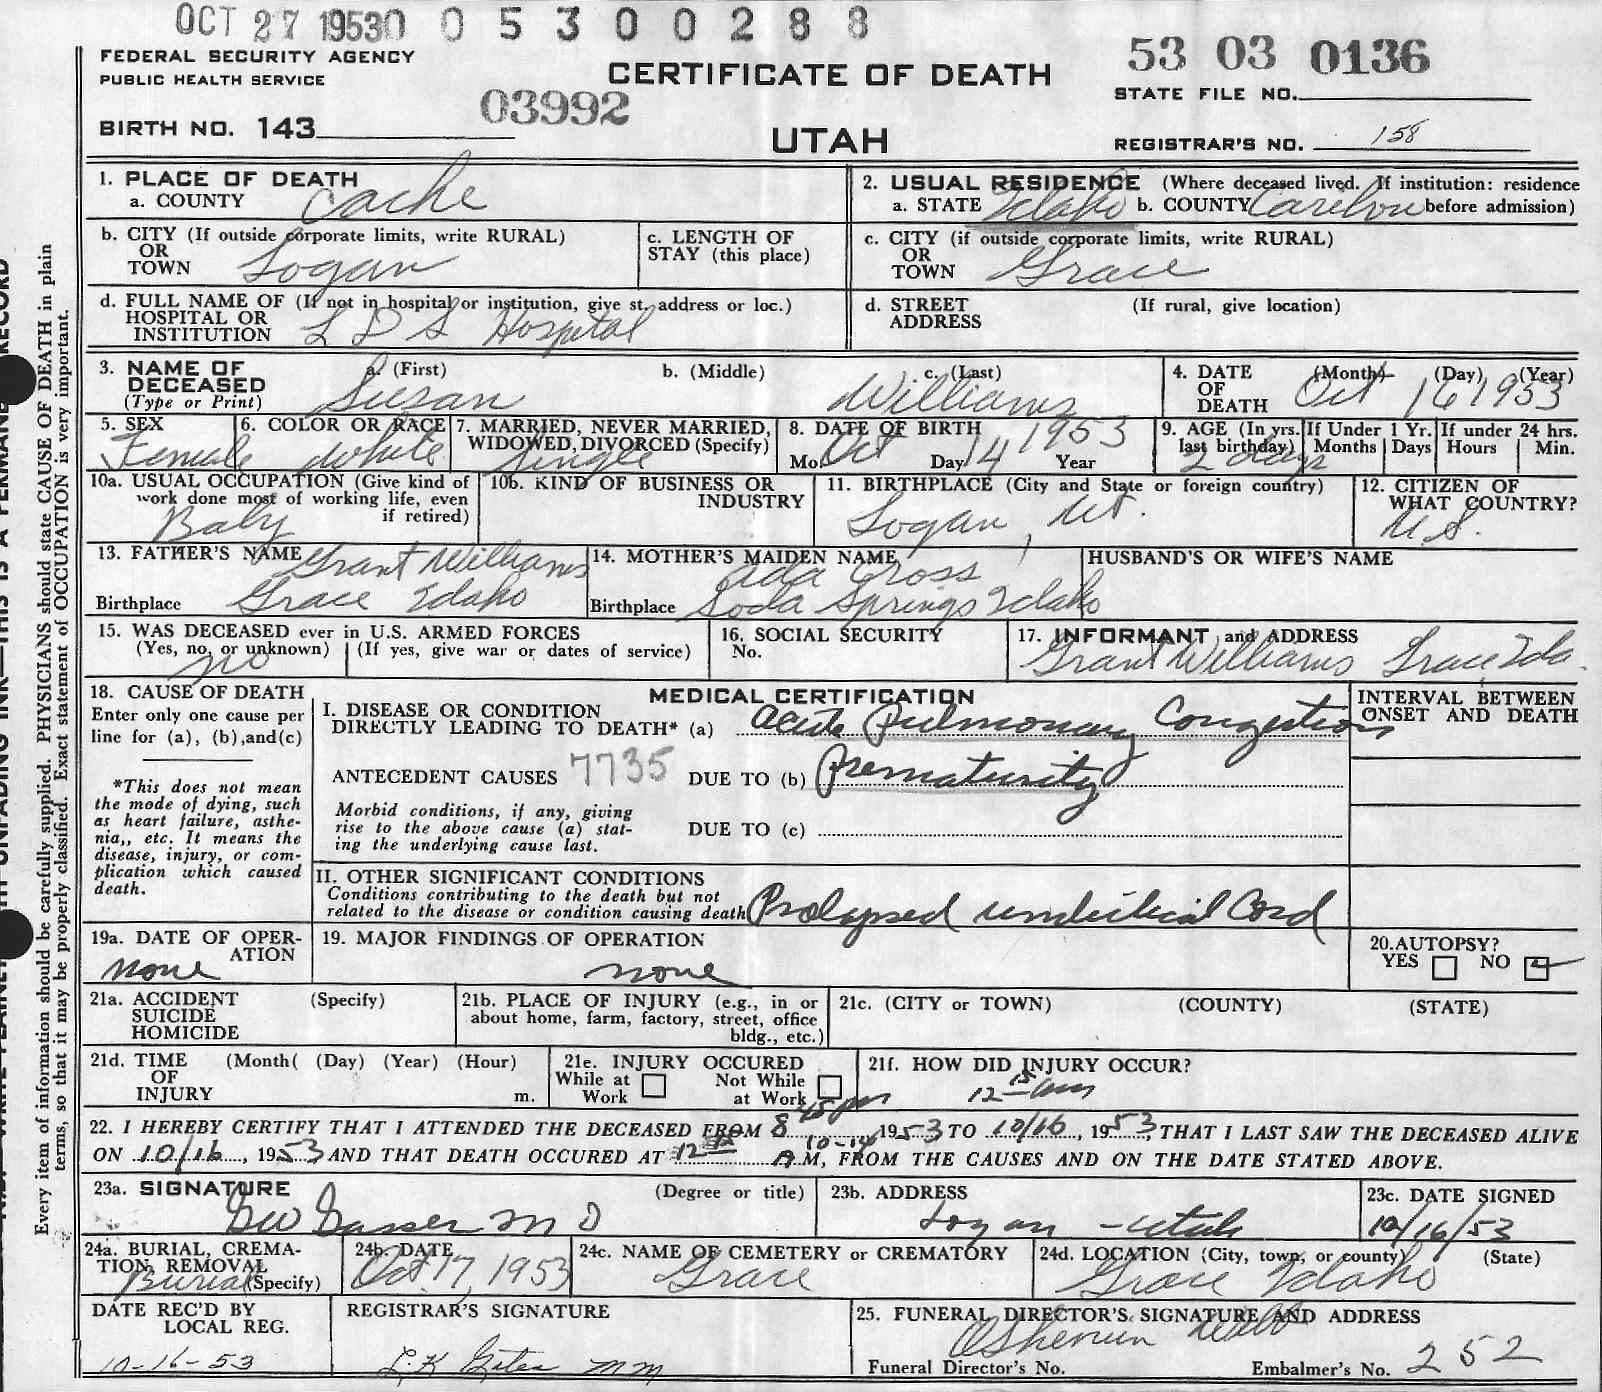 OCT 27 1953 0 0 5 3 0 0 2 8 8
FEDERAL SECURITY AGENCY
PUBLIC HEALTH SERVICE
CERTIFICATE OF DEATH
53 03 0136
STATE FILE NO.
03992
BIRTH NO. 143
UTAH
REGISTRAR'S NO. 158
1. PLACE OF DEATH
a. COUNTY Cache
2. USUAL RESIDENCE (Where deceased lived. If institution: residence
a. STATE Idaho b. COUNTY Caribou before admission)
b. CITY (If outside corporate limits, write RURAL)
OR
TOWN Logan
c. LENGTH OF
STAY (this place)
c. CITY (if outside corporate limits, write RURAL)
OR
TOWN Grace
d. FULL NAME OF (If not in hospital or institution, give st. address or loc.)
HOSPITAL OR
INSTITUTION L D S Hospital
d. STREET
ADDRESS
(If rural, give location)
3. NAME OF
DECEASED
(Type or Print)
a. (First) b. (Middle) c. (Last)
Susan Williams
4. DATE
OF
DEATH
(Month) (Day) (Year)
Oct 16 1953
5. SEX
Female
6. COLOR OR RACE
White
7. MARRIED, NEVER MARRIED,
WIDOWED, DIVORCED (Specify)
Single
8. DATE OF BIRTH
Mo. Oct Day 14 Year 1953
9. AGE (In yrs.
last birthday)
2 days
If Under 1 Yr.
Months Days
If under 24 hrs.
Hours Min.
10a. USUAL OCCUPATION (Give kind of
work done most of working life, even
if retired)
Baby
10b. KIND OF BUSINESS OR
INDUSTRY
11. BIRTHPLACE (City and State or foreign country)
Logan, Ut.
12. CITIZEN OF
WHAT COUNTRY?
U.S.
13. FATHER'S NAME Grant Williams
Birthplace Grace Idaho
14. MOTHER'S MAIDEN NAME
Ada Gross
Birthplace Soda Springs Idaho
HUSBAND'S OR WIFE'S NAME
15. WAS DECEASED ever in U.S. ARMED FORCES
(Yes, no, or unknown) (If yes, give war or dates of service)
no
16. SOCIAL SECURITY
No.
17. INFORMANT and ADDRESS
Grant Williams Grace Ida.
18. CAUSE OF DEATH
Enter only one cause per
line for (a), (b), and (c)
*This does not mean
the mode of dying, such
as heart failure, asthe-
nia,, etc. It means the
disease, injury, or com-
plication which caused
death.
MEDICAL CERTIFICATION
I. DISEASE OR CONDITION
DIRECTLY LEADING TO DEATH* (a) Acute Pulmonary Congestion
ANTECEDENT CAUSES 7735 DUE TO (b) Prematurity
Morbid conditions, if any, giving
rise to the above cause (a) stat-
ing the underlying cause last.
DUE TO (c)
INTERVAL BETWEEN
ONSET AND DEATH
II. OTHER SIGNIFICANT CONDITIONS
Conditions contributing to the death but not
related to the disease or condition causing death Prolapsed umbilical Cord
19a. DATE OF OPER-
ATION
none
19. MAJOR FINDINGS OF OPERATION
none
20. AUTOPSY?
YES NO
21a. ACCIDENT (Specify)
SUICIDE
HOMICIDE
21b. PLACE OF INJURY (e.g., in or
about home, farm, factory, street, office
bldg., etc.)
21c. (CITY or TOWN) (COUNTY) (STATE)
21d. TIME (Month( (Day) (Year) (Hour)
OF
INJURY m.
21e. INJURY OCCURED
While at Work
Not While at Work
21f. HOW DID INJURY OCCUR?
12 15 am
22. I HEREBY CERTIFY THAT I ATTENDED THE DECEASED FROM 8 45 pm 10-14 1953 TO 10/16, 1953, THAT I LAST SAW THE DECEASED ALIVE
ON 10/16, 1953 AND THAT DEATH OCCURED AT 12 15 A.M, FROM THE CAUSES AND ON THE DATE STATED ABOVE.
23a. SIGNATURE (Degree or title)
GW Gasser M D
23b. ADDRESS
Logan - Utah
23c. DATE SIGNED
10/16/53
24a. BURIAL, CREMA-
TION, REMOVAL
Burial (Specify)
24b. DATE
Oct 17, 1953
24c. NAME OF CEMETERY or CREMATORY
Grace
24d. LOCATION (City, town, or county) (State)
Grace Idaho
DATE REC'D BY
LOCAL REG.
10-16-53
REGISTRAR'S SIGNATURE
25. FUNERAL DIRECTOR'S SIGNATURE AND ADDRESS
Funeral Director's No.
Embalmer's No. 252
Every item of information should be carefully supplied. PHYSICIANS should state CAUSE OF DEATH in plain
terms, so that it may be properly classified. Exact statement of OCCUPATION is very important.